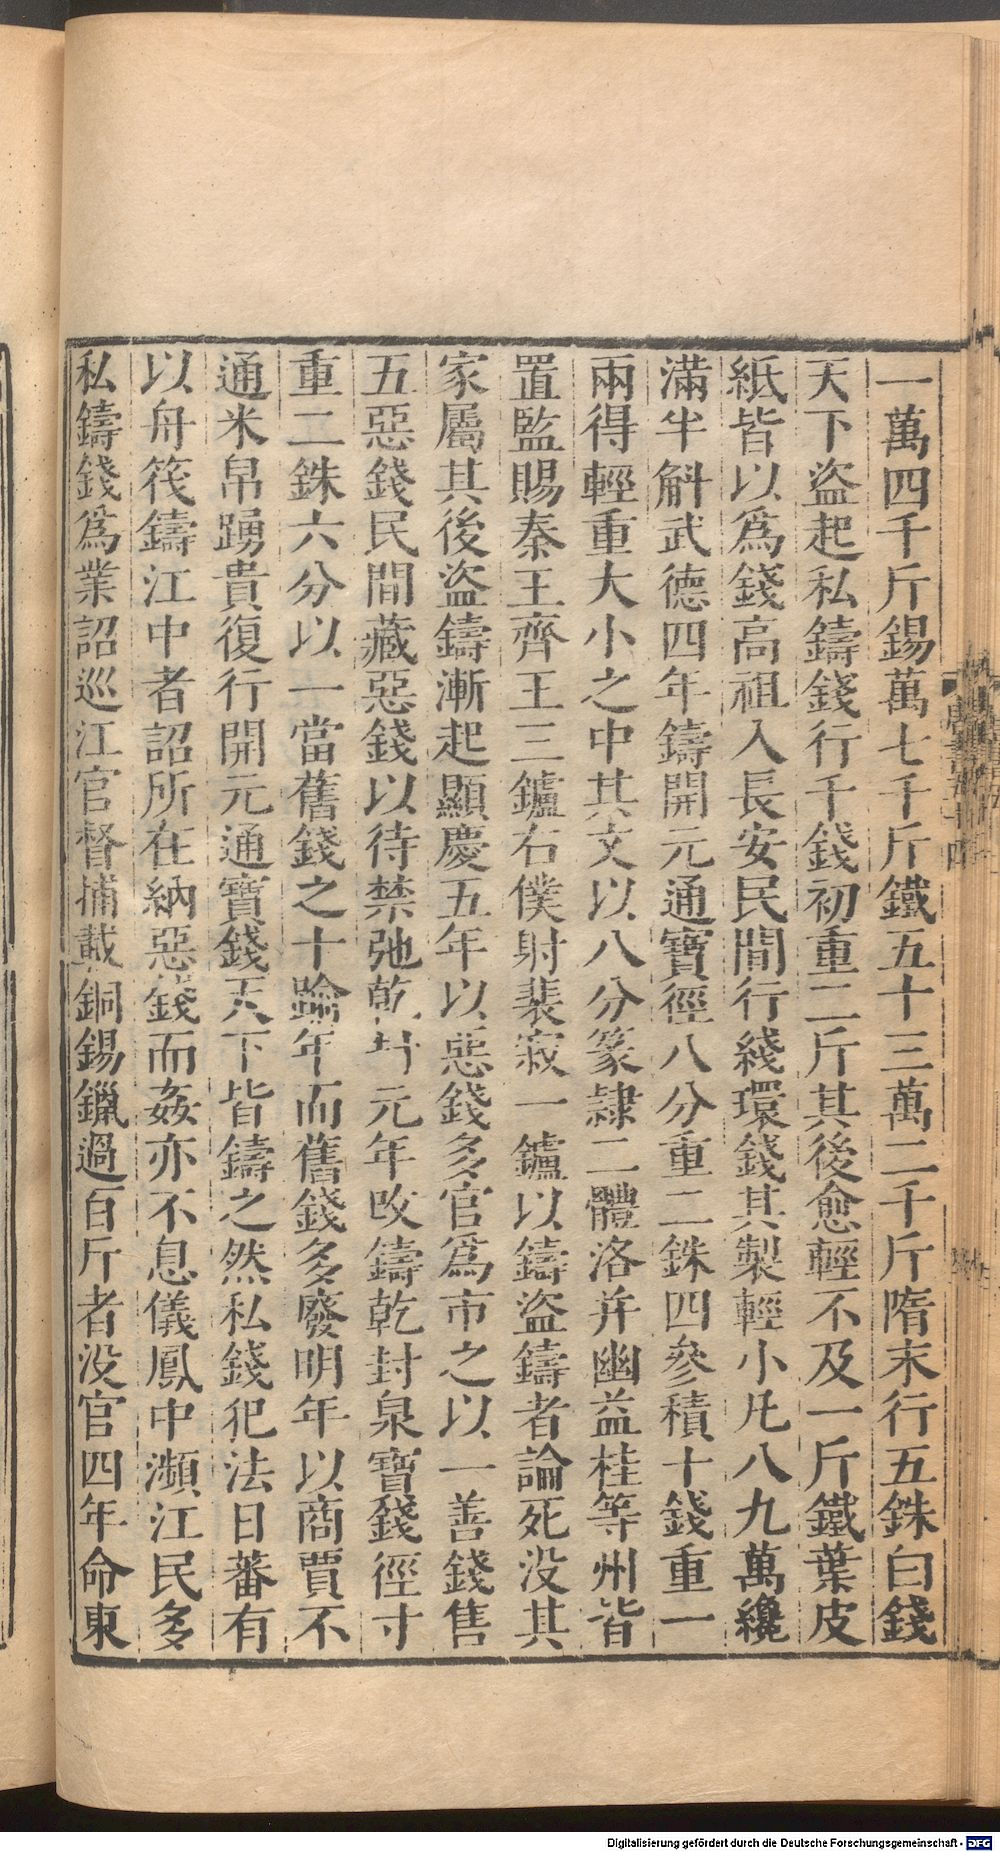 一萬四千斤錫萬七千斤鐵五十三萬二千斤隋末行五銖白錢
天下盜起私鑄錢行千錢初重二斤其後愈輕不及一斤鐵葉皮
紙皆以爲錢高祖入長安民間行綫環錢其製輕小凡八九萬纔
滿半斛武德四年鑄開元通寶徑八分重二銖四參積十錢重一
兩得輕重大小之中其文以八分篆隸二體洛并幽益桂等州皆
置監賜秦王齊王三鑪右僕射裴寂一鑪以鑄盜鑄者論死没其
家屬其後盜鑄漸起顯慶五年以惡錢多官爲市之以一善錢售
五惡錢民間藏惡錢以待禁弛乾封元年改鑄乾封泉寶錢徑寸
重二銖六分以一當舊錢之十踰年而舊錢多廢明年以商賈不
通米帛踴貴復行開元通寶錢天下皆鑄之然私錢犯法日蕃有
以舟筏鑄江中者詔所在納惡錢而姦亦不息儀鳳中瀕江民多
私鑄錢爲業詔巡江官督捕載銅錫鑞過百斤者没官四年命東
Digitalisierung gefördert durch die Deutsche Forschungsgemeinschaft - DFG